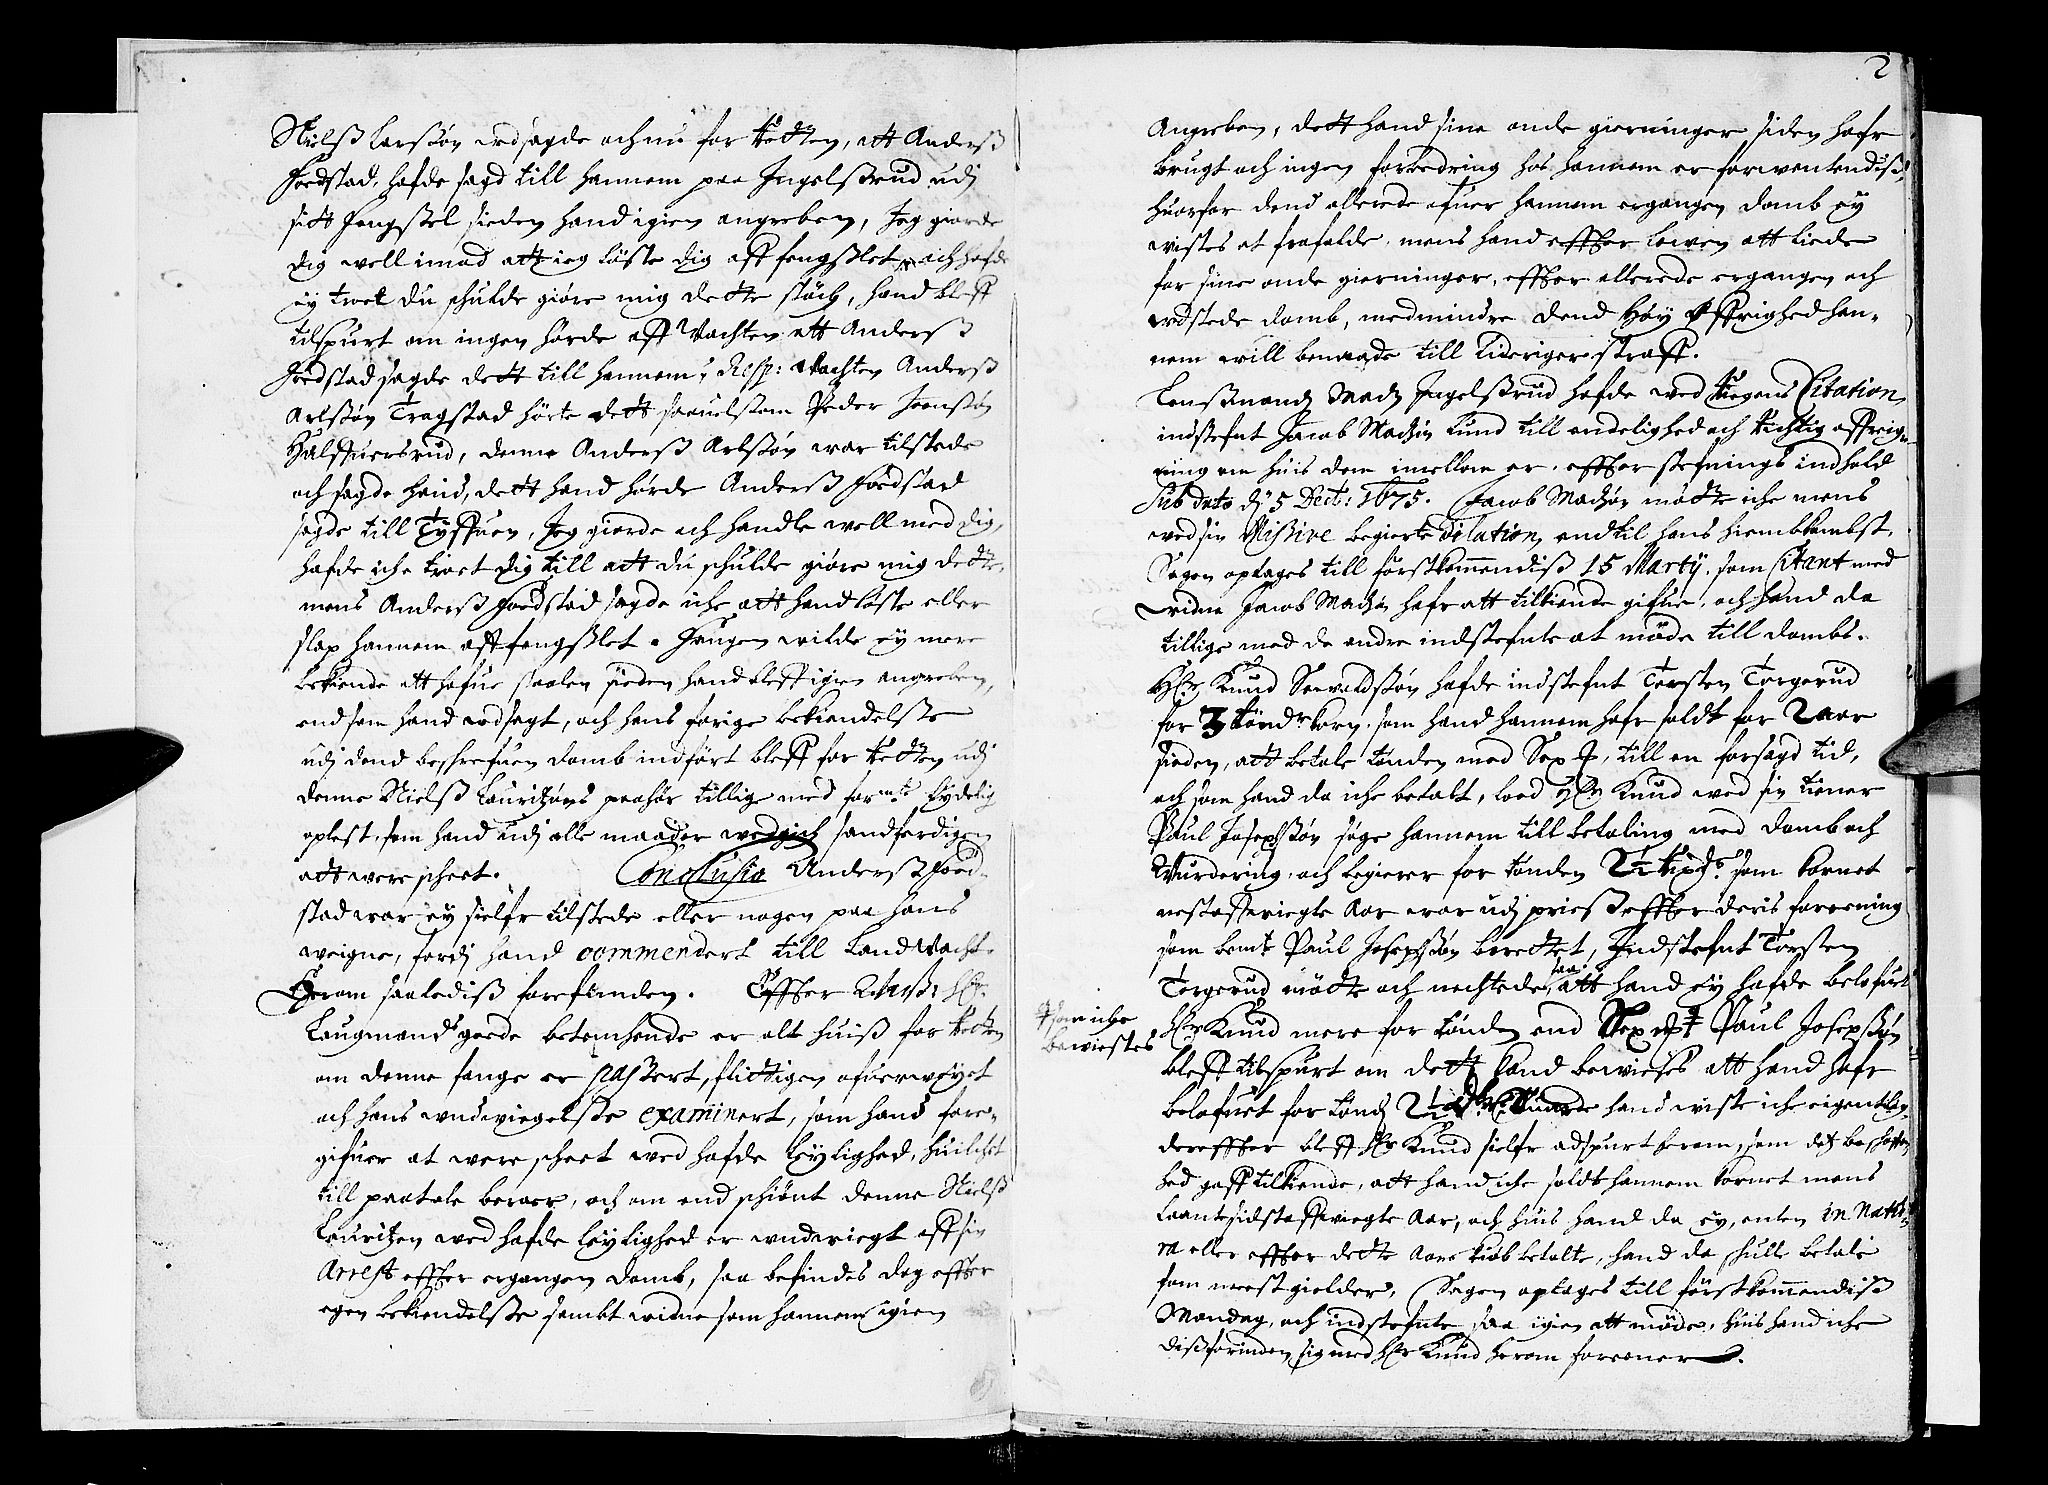 Nielß Larssøn vedsagde och nu for Retten, att Anderß
Foedstad, hafde sagd till hannem paa Ingelßrud udj
sitt fengsel sieden hand igien angreben, Jeg giorde
dig well imod att ieg løste dig aff fengßlet och hafde
ey troet du schulde giøre mig dette støch, hand bleff
tilspurt om ingen hørde aff Wachten att Anderß
Foedstad sagde dett till hannem, Resp: Wachten Anderß
Arlssøn Tragstad hørte dett saauelsom Peder Joenssøn
Halffuersrud, denne Anderß Arlssøn war tilstede
och sagde hans, dett hand hørde Anderß Foedstad
sagde till Tyffuen, Jeg giorde och handle well med dig,
hafde iche troet dig till att du schulde giøre mig dette,
mens Anderß Foedstad sagde iche att hand løste eller
slap hannem aff fengßlet. Fangen wilde ey mere
bekiende att hafue staalen sieden hand bleff igien angreben,
end som hand vedsagt, och hans forige bekiendelße
udj dend beschrefuen domb indført bleff for Retten udj
denne Nielß Lauritzøns paahør tillige med for.nte tydelig
oplest, som hand udj alle maader wedgich sandferdigen
att were scheet. Conclusio Anderß Foed-
stad war ey sielfr tilstede eller nogen paa hans
weigne, fordj hand commendert till Landwacht.
Herom saaledis forefunden. Effter Welb: Hr.
Laugmands goede betenchende er alt huiß for Retten
om denne fange er passert, flittigen ofuerweyet
och hans undwiegelße examinert, som hand fore-
gifuer at were scheet wed hafde leylighed, huilchet
till paatale beroer, och om end schiønt denne Nielß
Lauritzen wed hafde leylighed er undwiegt aff sin
Arrest effter ergangen domb, saa befindes dog effter
egen bekiendelße sambt widne som hannem igien
2
Angreben, dett hand sine onde gierninger siden hafr
brugt och ingen forbedring hos hannem er forwentendiß,
huorfor dend allerede ofuer hannem ergangen domb ey
wistes at frafalde, mens hand effter lowen att liede
for sine onde gierninger, effter allerede ergangen och
udstede domb, medmindre dend Høy Øffrighed han-
nem will benaade till lideriger straff.
Lenßmand Madz Ingelßrud hafde wed Regens Citation
indstefnt Jacob Madzøn Lund till endelighed och Richtig affreig-
ning om huis dem imellom er, effter stefnings indhold
Sub dato dj 5 Dect: 1675. Jacob Madzøn mødte iche mens
wed sin Missive begierte dilation, endtil hans hiembkombst.
Sagen optages till førstkommendiß 15 Martij, som Citant med
widne Jacob Madzøn hafr att tilkiende gifue, och hand da
tillige med de andre indstefnte at møde till dombs.
Hr. Knud Sewaldssøn hafde indstefnt Torsten Torgerud
for 3 tønder korn, som hand hannem hafr soldt for 2 aar
sieden, att betale tønden med Sex , till en forsagd tid,
och som hand da iche betalt, loed Hr. Knud wed sin tiener
Paul Josephssøn søge hannem till betaling med domb och
Wurdering, och begierer for tønden 2½ Rixdr. som kornet
nestaffwiegte Aar war udj prieß effter deris forrening
som bemte Paul Josephssøn berettet, Indstefnt Torsten
Torgerud møtte och nechtede saa att hand ey hafde belofuet
Hr Knud mere for tønden end Sex Paul Josepßøn
som iche
bewiestes
bleff tilspurt om dett kand bewieses att hand hafr
belofuet for tønd 2½ hand wiste iche eigentlig,
dereffter bleff Hr Knud sielfr adspurt herom, som dets beschaffen-
hed gaff tilkiende, att hand iche solde hannem kornet mens
laante sidstaffwiegte Aar, och huis hand da ey, enten in natu-
ra eller effter dette Aars kiøb betalte, hand da schulle betale
som meest gielder, Sagen optages till førstkommendiß
Mandag, och indstefnte saa igien att møde, huis hand iche
dißforinden sig med Hr Knud herom forener.